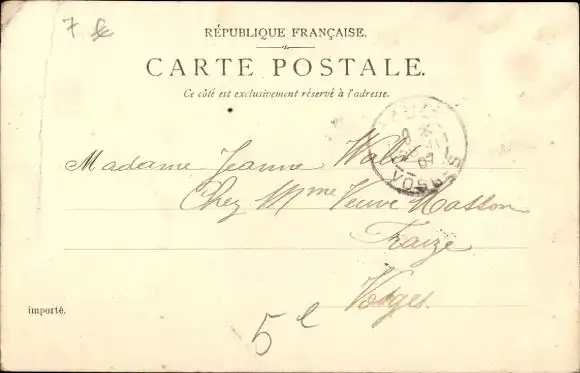 7 &
RÉPUBLIQUE FRANÇAISE.
CARTE POSTALE.
Ce côté est exclusivement réservé à l'adresse.
07
VOSGES
Madame Jeanne
Chez Mme Veuve Masson
Fraize
Vosges.
importé.
5 e